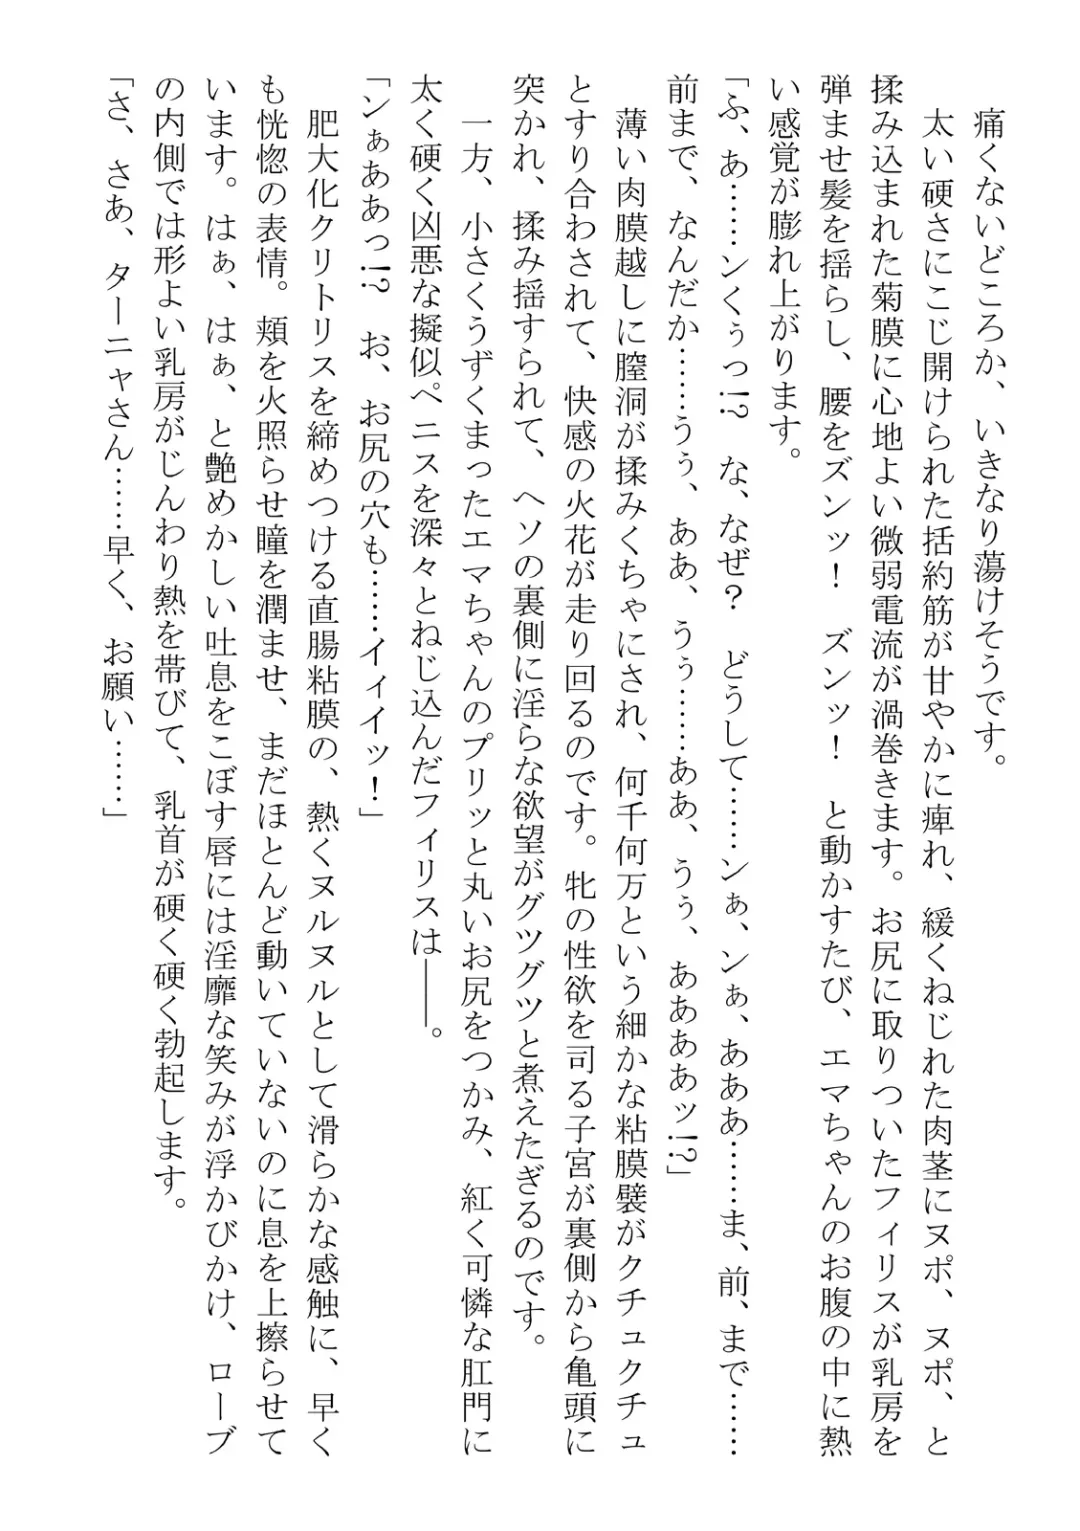 痛くないどころか、いきなり蕩けそうです。
太い硬さにこじ開けられた括約筋が甘やかに痺れ、緩くねじれた肉茎にヌポ、ヌポ、と
揉み込まれた菊膜に心地よい微弱電流が渦巻きます。お尻に取りついたフィリスが乳房を
弾ませ髪を揺らし、腰をズンッ！　ズンッ！　と動かすたび、エマちゃんのお腹の中に熱
い感覚が膨れ上がります。
「ふ、あ……ンくぅっ!?　な、なぜ？　どうして……ンぁ、ンぁ、あああ……ま、前、まで……
前まで、なんだか……うぅ、ああ、うぅ……ああ、うぅ、ああああッ!?」
薄い肉膜越しに膣洞が揉みくちゃにされ、何千何万という細かな粘膜襞がクチュクチュ
とすり合わされて、快感の火花が走り回るのです。牝の性欲を司る子宮が裏側から亀頭に
突かれ、揉み揺すられて、ヘソの裏側に淫らな欲望がグツグツと煮えたぎるのです。
一方、小さくうずくまったエマちゃんのプリッと丸いお尻をつかみ、紅く可憐な肛門に
太く硬く凶悪な擬似ペニスを深々とねじ込んだフィリスは――。
「ンぁああっ!?　お、お尻の穴も……イィイッ！」
肥大化クリトリスを締めつける直腸粘膜の、熱くヌルヌルとして滑らかな感触に、早く
も恍惚の表情。頬を火照らせ瞳を潤ませ、まだほとんど動いていないのに息を上擦らせて
います。はぁ、はぁ、と艶めかしい吐息をこぼす唇には淫靡な笑みが浮かびかけ、ローブ
の内側では形よい乳房がじんわり熱を帯びて、乳首が硬く硬く勃起します。
「さ、さあ、ターニャさん……早く、お願い……」